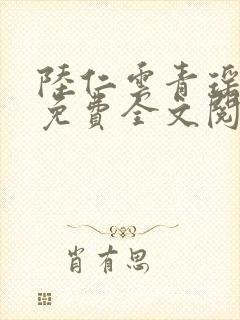 陸仁雲青瑶
免費全文閱
肖有思